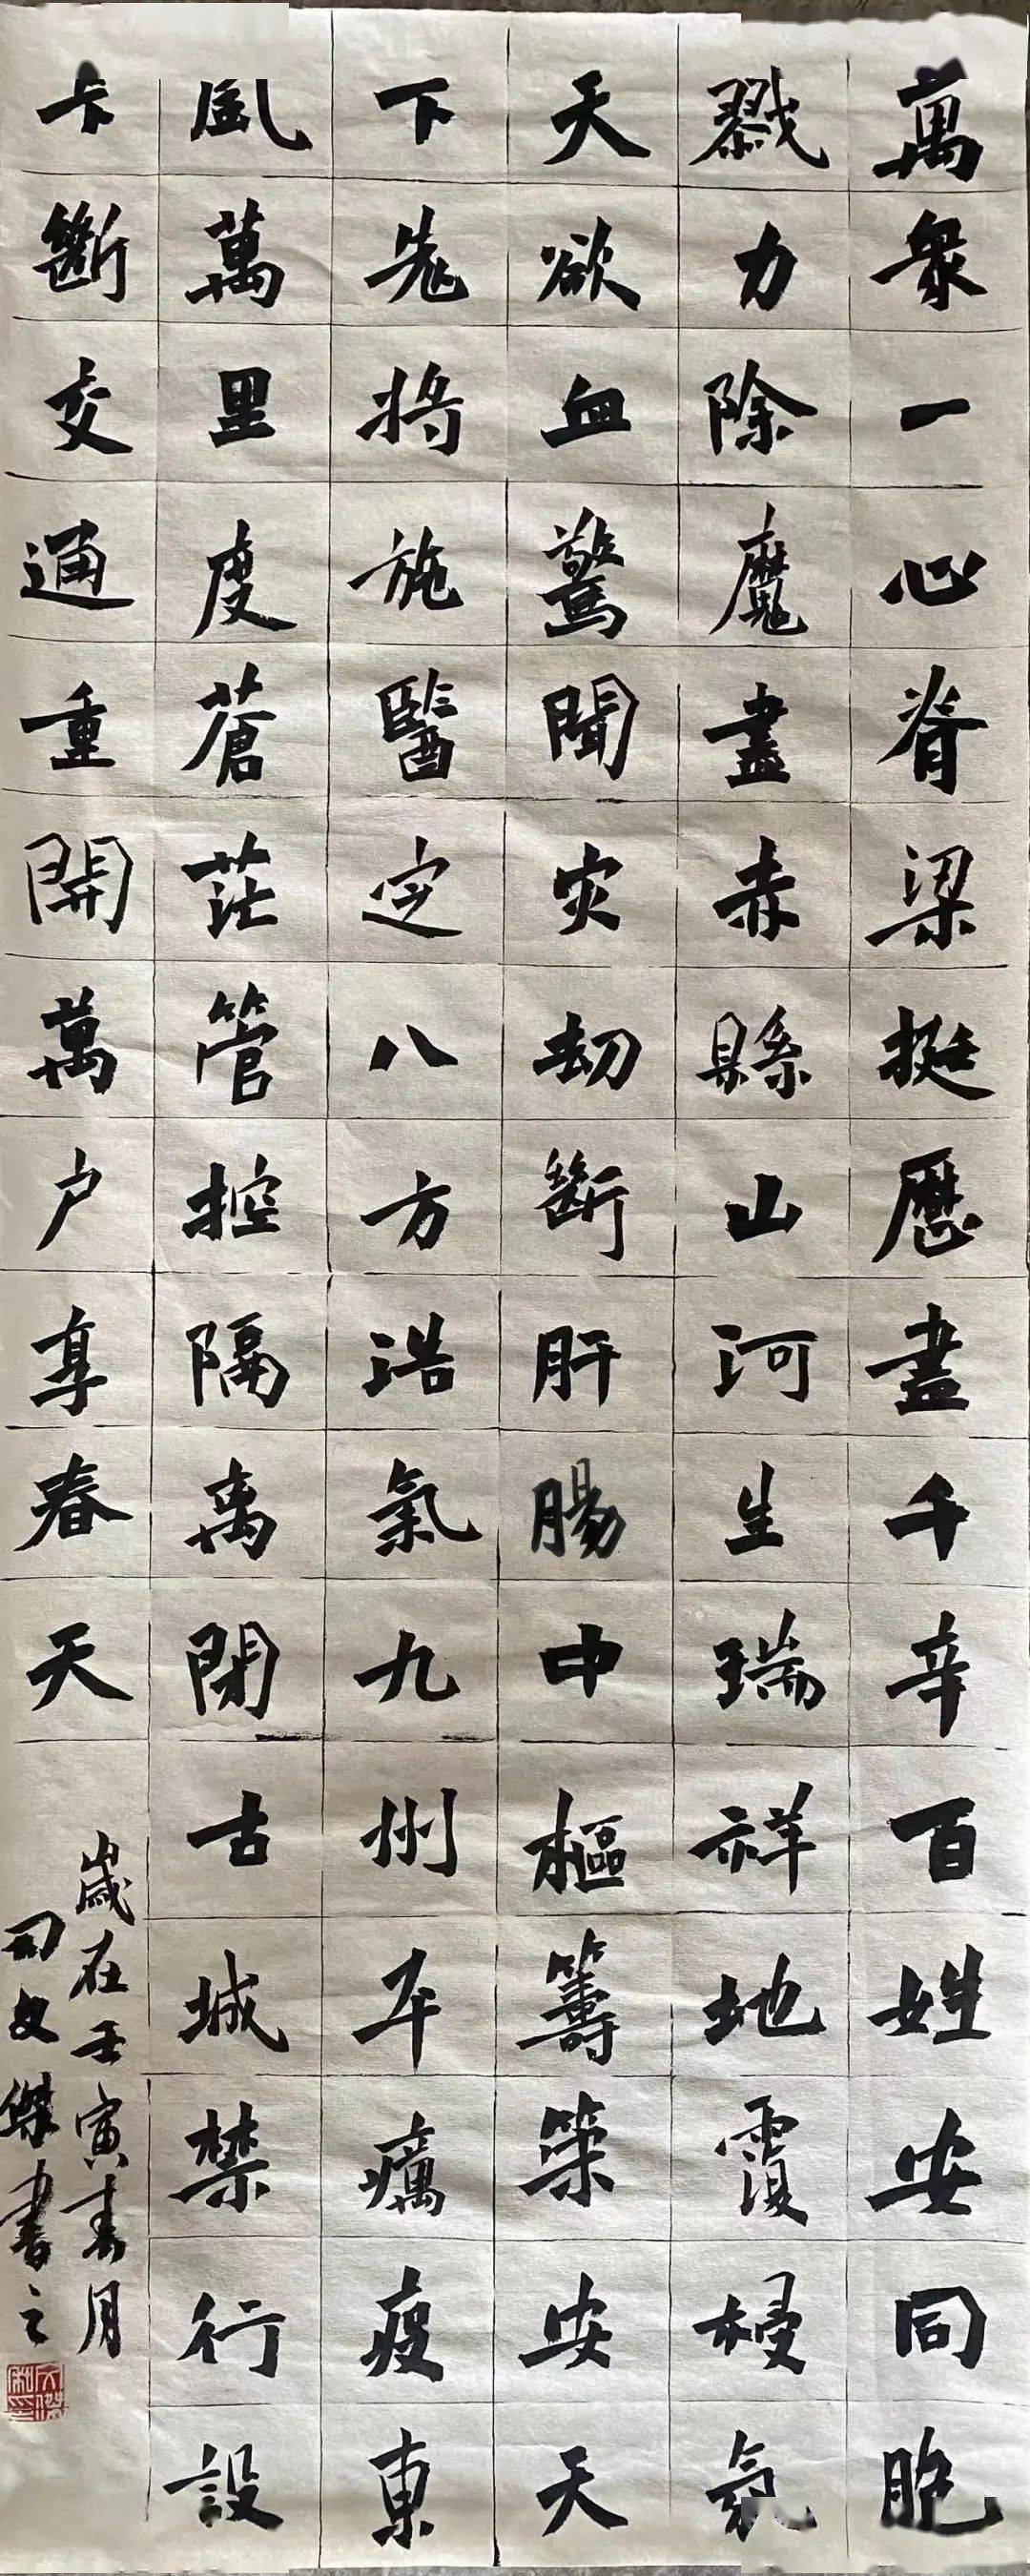 萬衆一心脊梁挺歷盡千辛百姓安同胞
戮力除魔盡赤縣山河生瑞祥地覆祲氛
天欲血驚聞灾劫斷肝腸中樞籌策安天
下先將施醫定八方浩氣九州平癘疫東
風萬里度蒼茫管控隔离閉古城禁行設
卡斷交通重開萬户享春天
歲在壬寅春月
司文傑書之